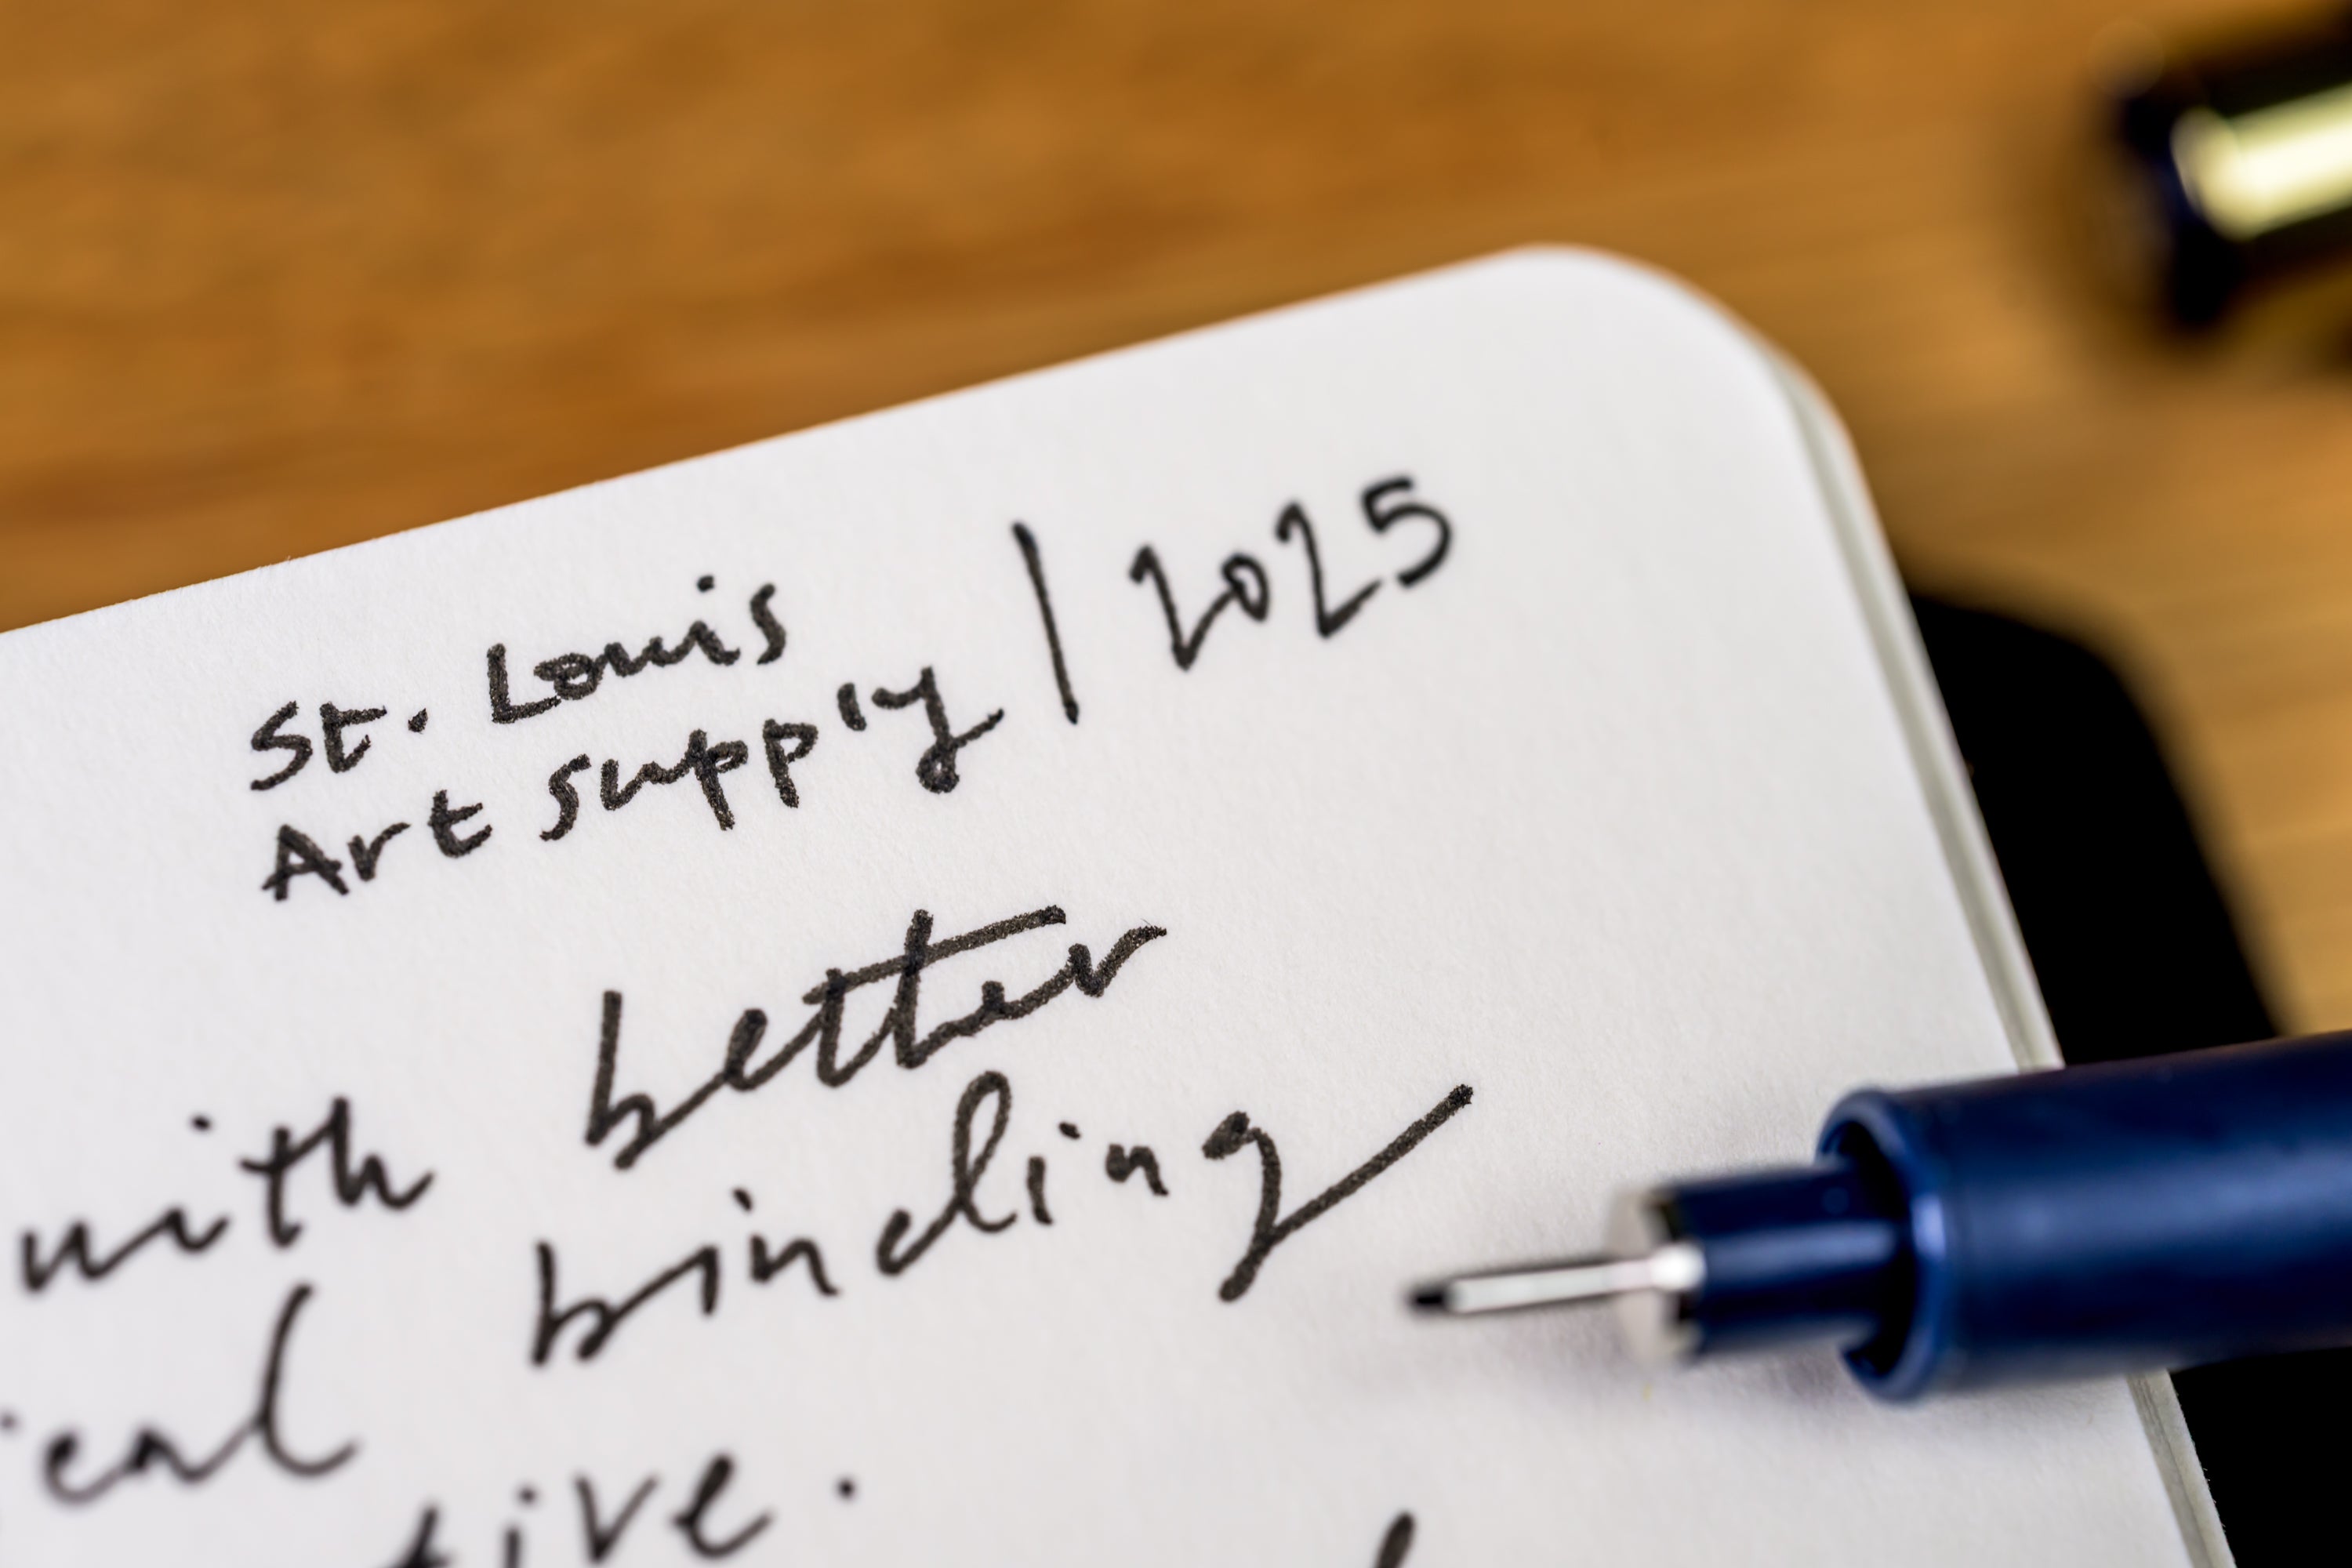 St. Louis
Art Supply | 2025
with better
binding